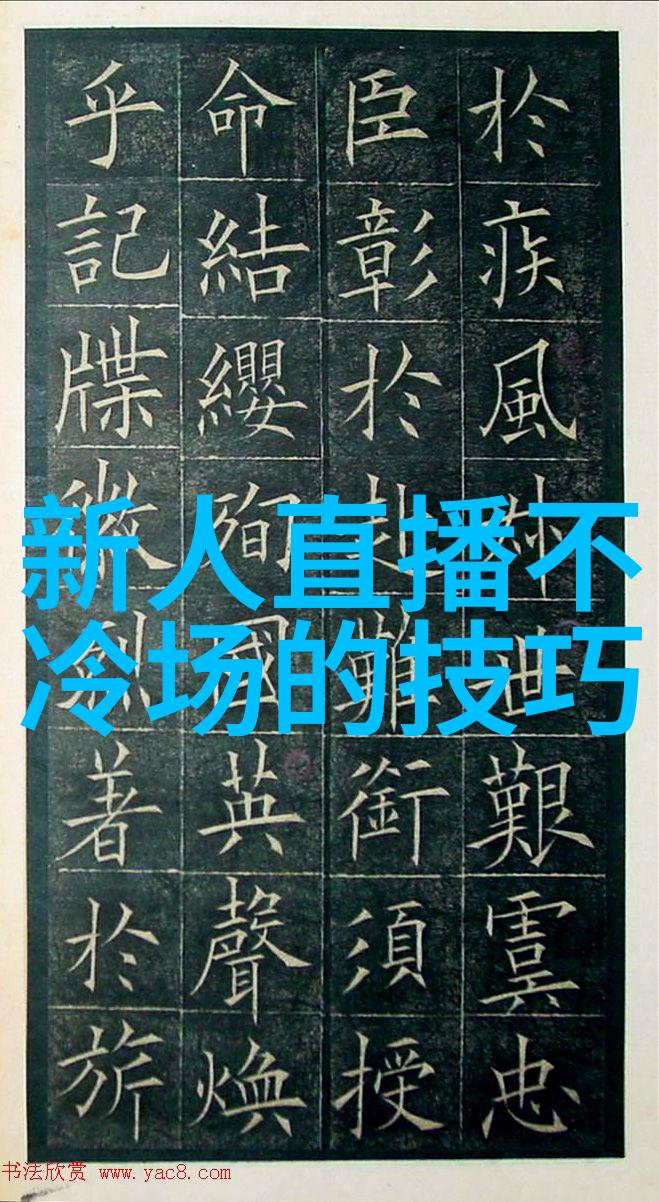 於疾風叔世艱虞忠
臣彰於赴難銜須授
命結纓殉國英聲煥
乎記牒徽烈著於旂
新人直播不
冷场的技巧
书法欣赏 www.yac8.com